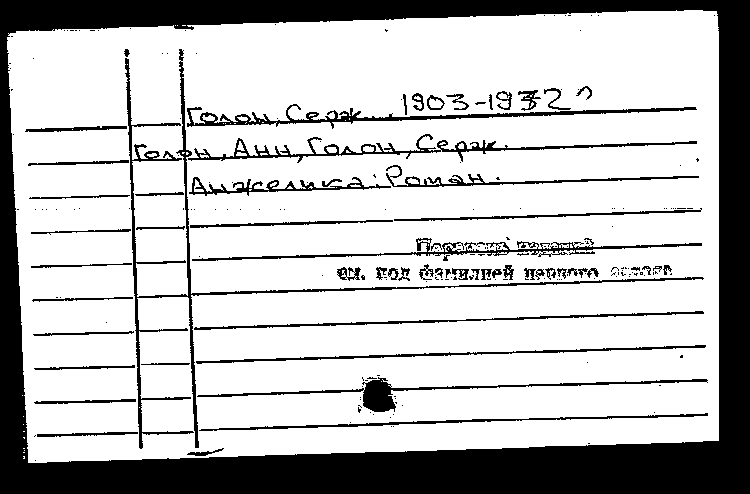 Голон, Серж... 1903-1972
Голон, Анн, Голон, Серж.
Анжелика: Роман.
Перечень изданий
см. под фамилией первого автора